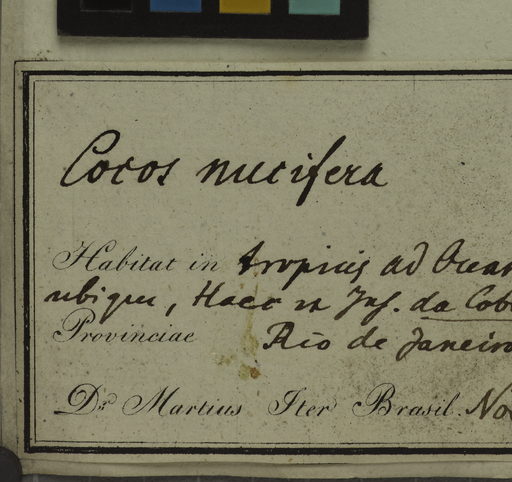 Cocos nucifera
Habitat in tropicis ad Ocean
ubique, Haec in Ins. da Cob
Provinciae Rio de Janeiro
Dr. Martius Iter Brasil. Nov